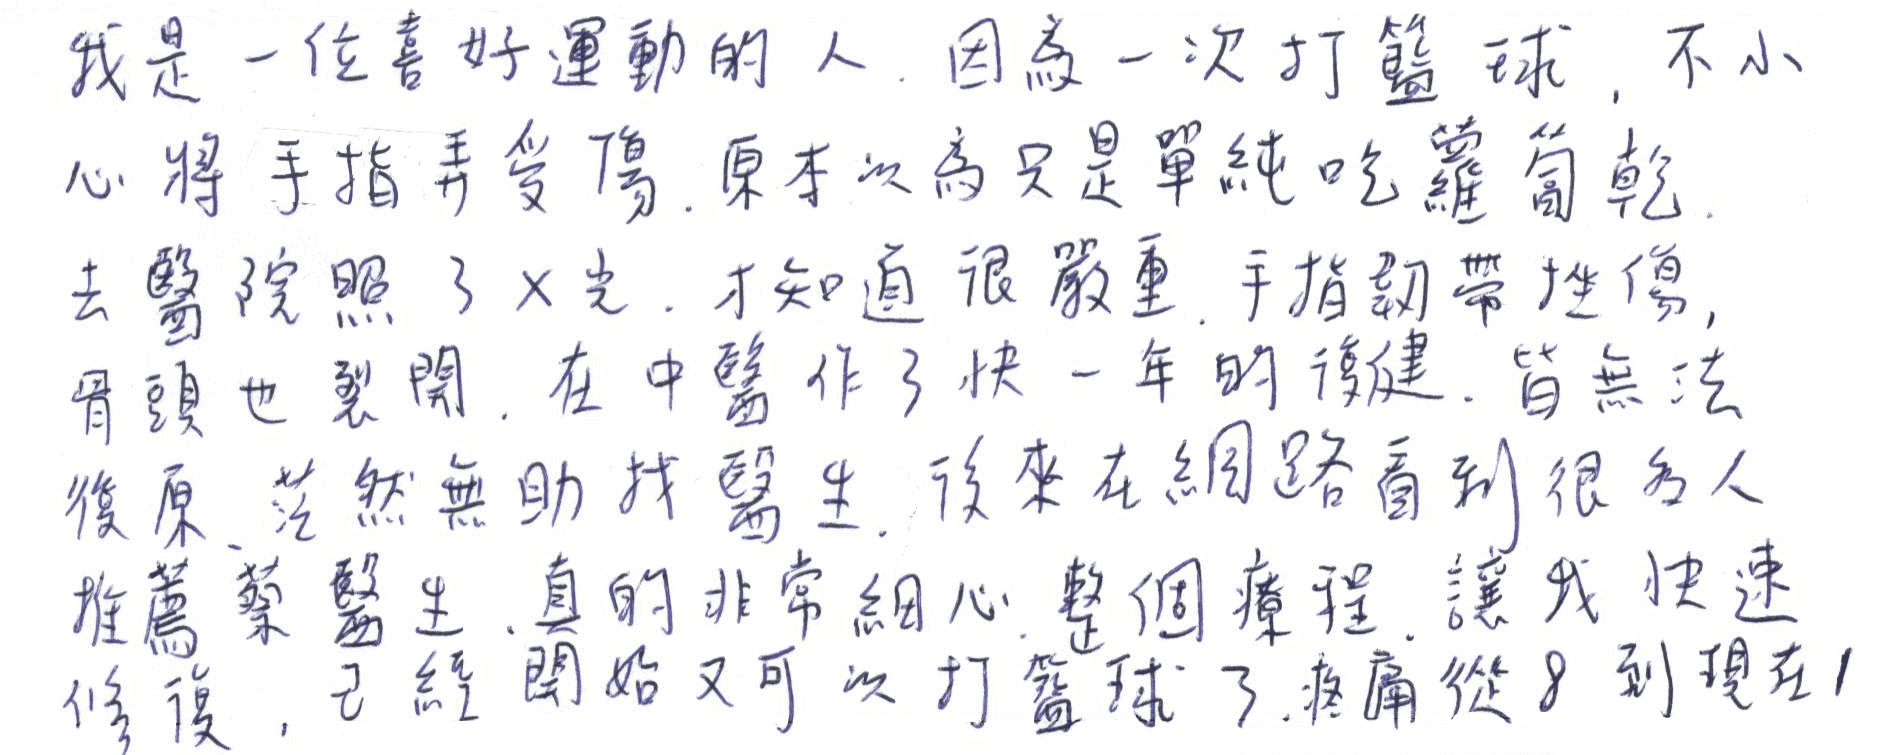 我是一位喜好運動的人.因為一次打籃球,不小
心將手指弄受傷.原本以為只是單純吃蘿蔔乾.
去醫院照了X光.才知道很嚴重.手指韌帶挫傷,
骨頭也裂開.在中醫作了快一年的復健.皆無法
復原.茫然無助找醫生.後來在網路看到很多人
推薦蔡醫生.真的非常細心.整個療程.讓我快速
修復,已經開始又可以打籃球了.疼痛從8到現在1